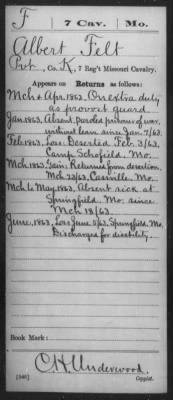 F | 7 Cav. | Mo.
Albert Felt
Pvt, Co. K, 7 Reg't Missouri Cavalry.
Appears on Returns as follows:
Mch & Apr. 1863, On extra duty
as provost guard.
Jan. 1863, Absent, paroled prisoner of war,
without leave since Jan. 7/63.
Feb. 1863, Loss: Deserted Feb. 3/63,
Camp Schofield, Mo.
Mch. 1863, Gain: Returned from desertion,
Mch. 23/63, Cassville, Mo.
Mch. to May, 1863, Absent sick at
Springfield, Mo. since
Mch 18/63.
June, 1863, Loss June 5/63, Springfield, Mo.
Discharged for disability.
Book Mark:
C. H. Underwood.
(546) Copyist.